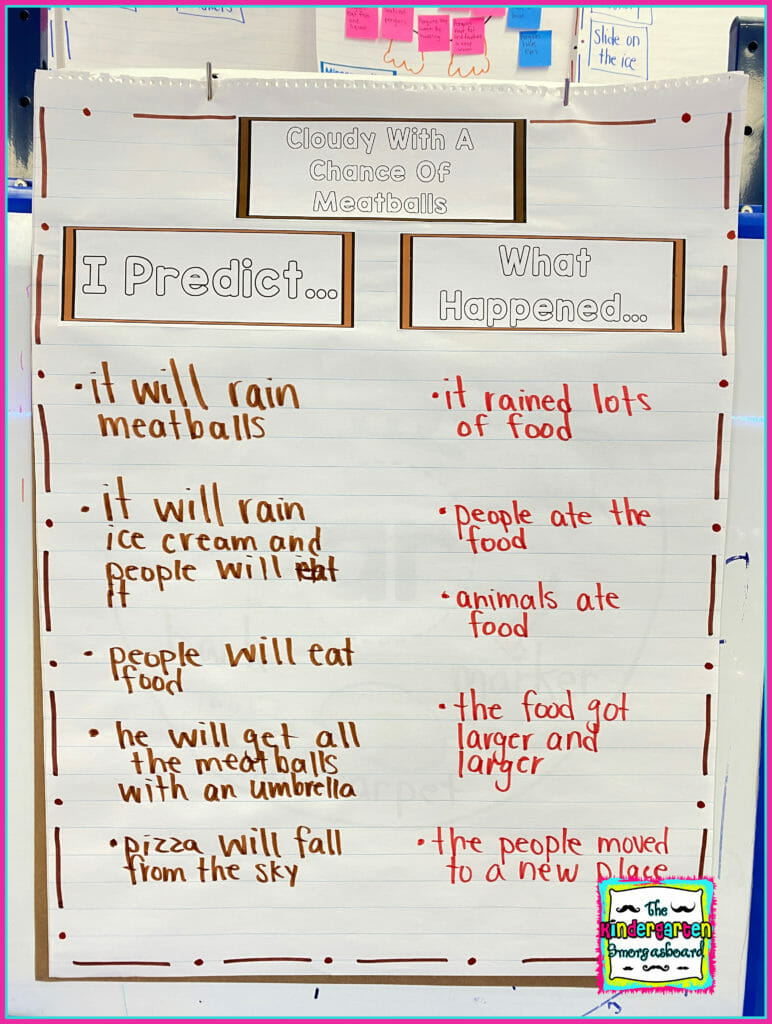 Slide on
the ice
Cloudy With A
Chance Of
Meatballs
I Predict...
• it will rain
meatballs
• it will rain
ice cream and
people will eat
it
• people will eat
food
• he will get all
the meatballs
with an umbrella
• pizza will fall
from the sky
What
Happened...
• it rained lots
of food
• people ate the
food
• animals ate
food
• the food got
larger and
larger
• the people moved
to a new place
The
Kindergarten
Smorgasboard